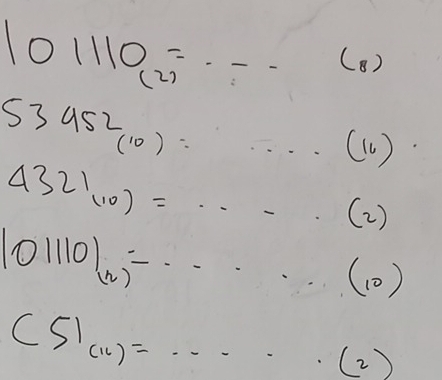 101110(2) = . - - (8)
53952(10) = .... (16) .
4321(10) = .. - . (2)
101110)(2) = - . - . - .. (10)
C51(16) = -- - - - . (2)